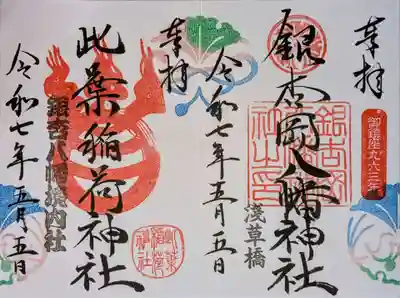 奉拝
御鎮座九六三年
銀杏岡八幡神社
銀杏岡八幡神社之印
浅草橋
令和七年五月五日
奉拝
此葉稲荷神社
此葉稲荷神社
銀杏八幡境内社
令和七年五月五日